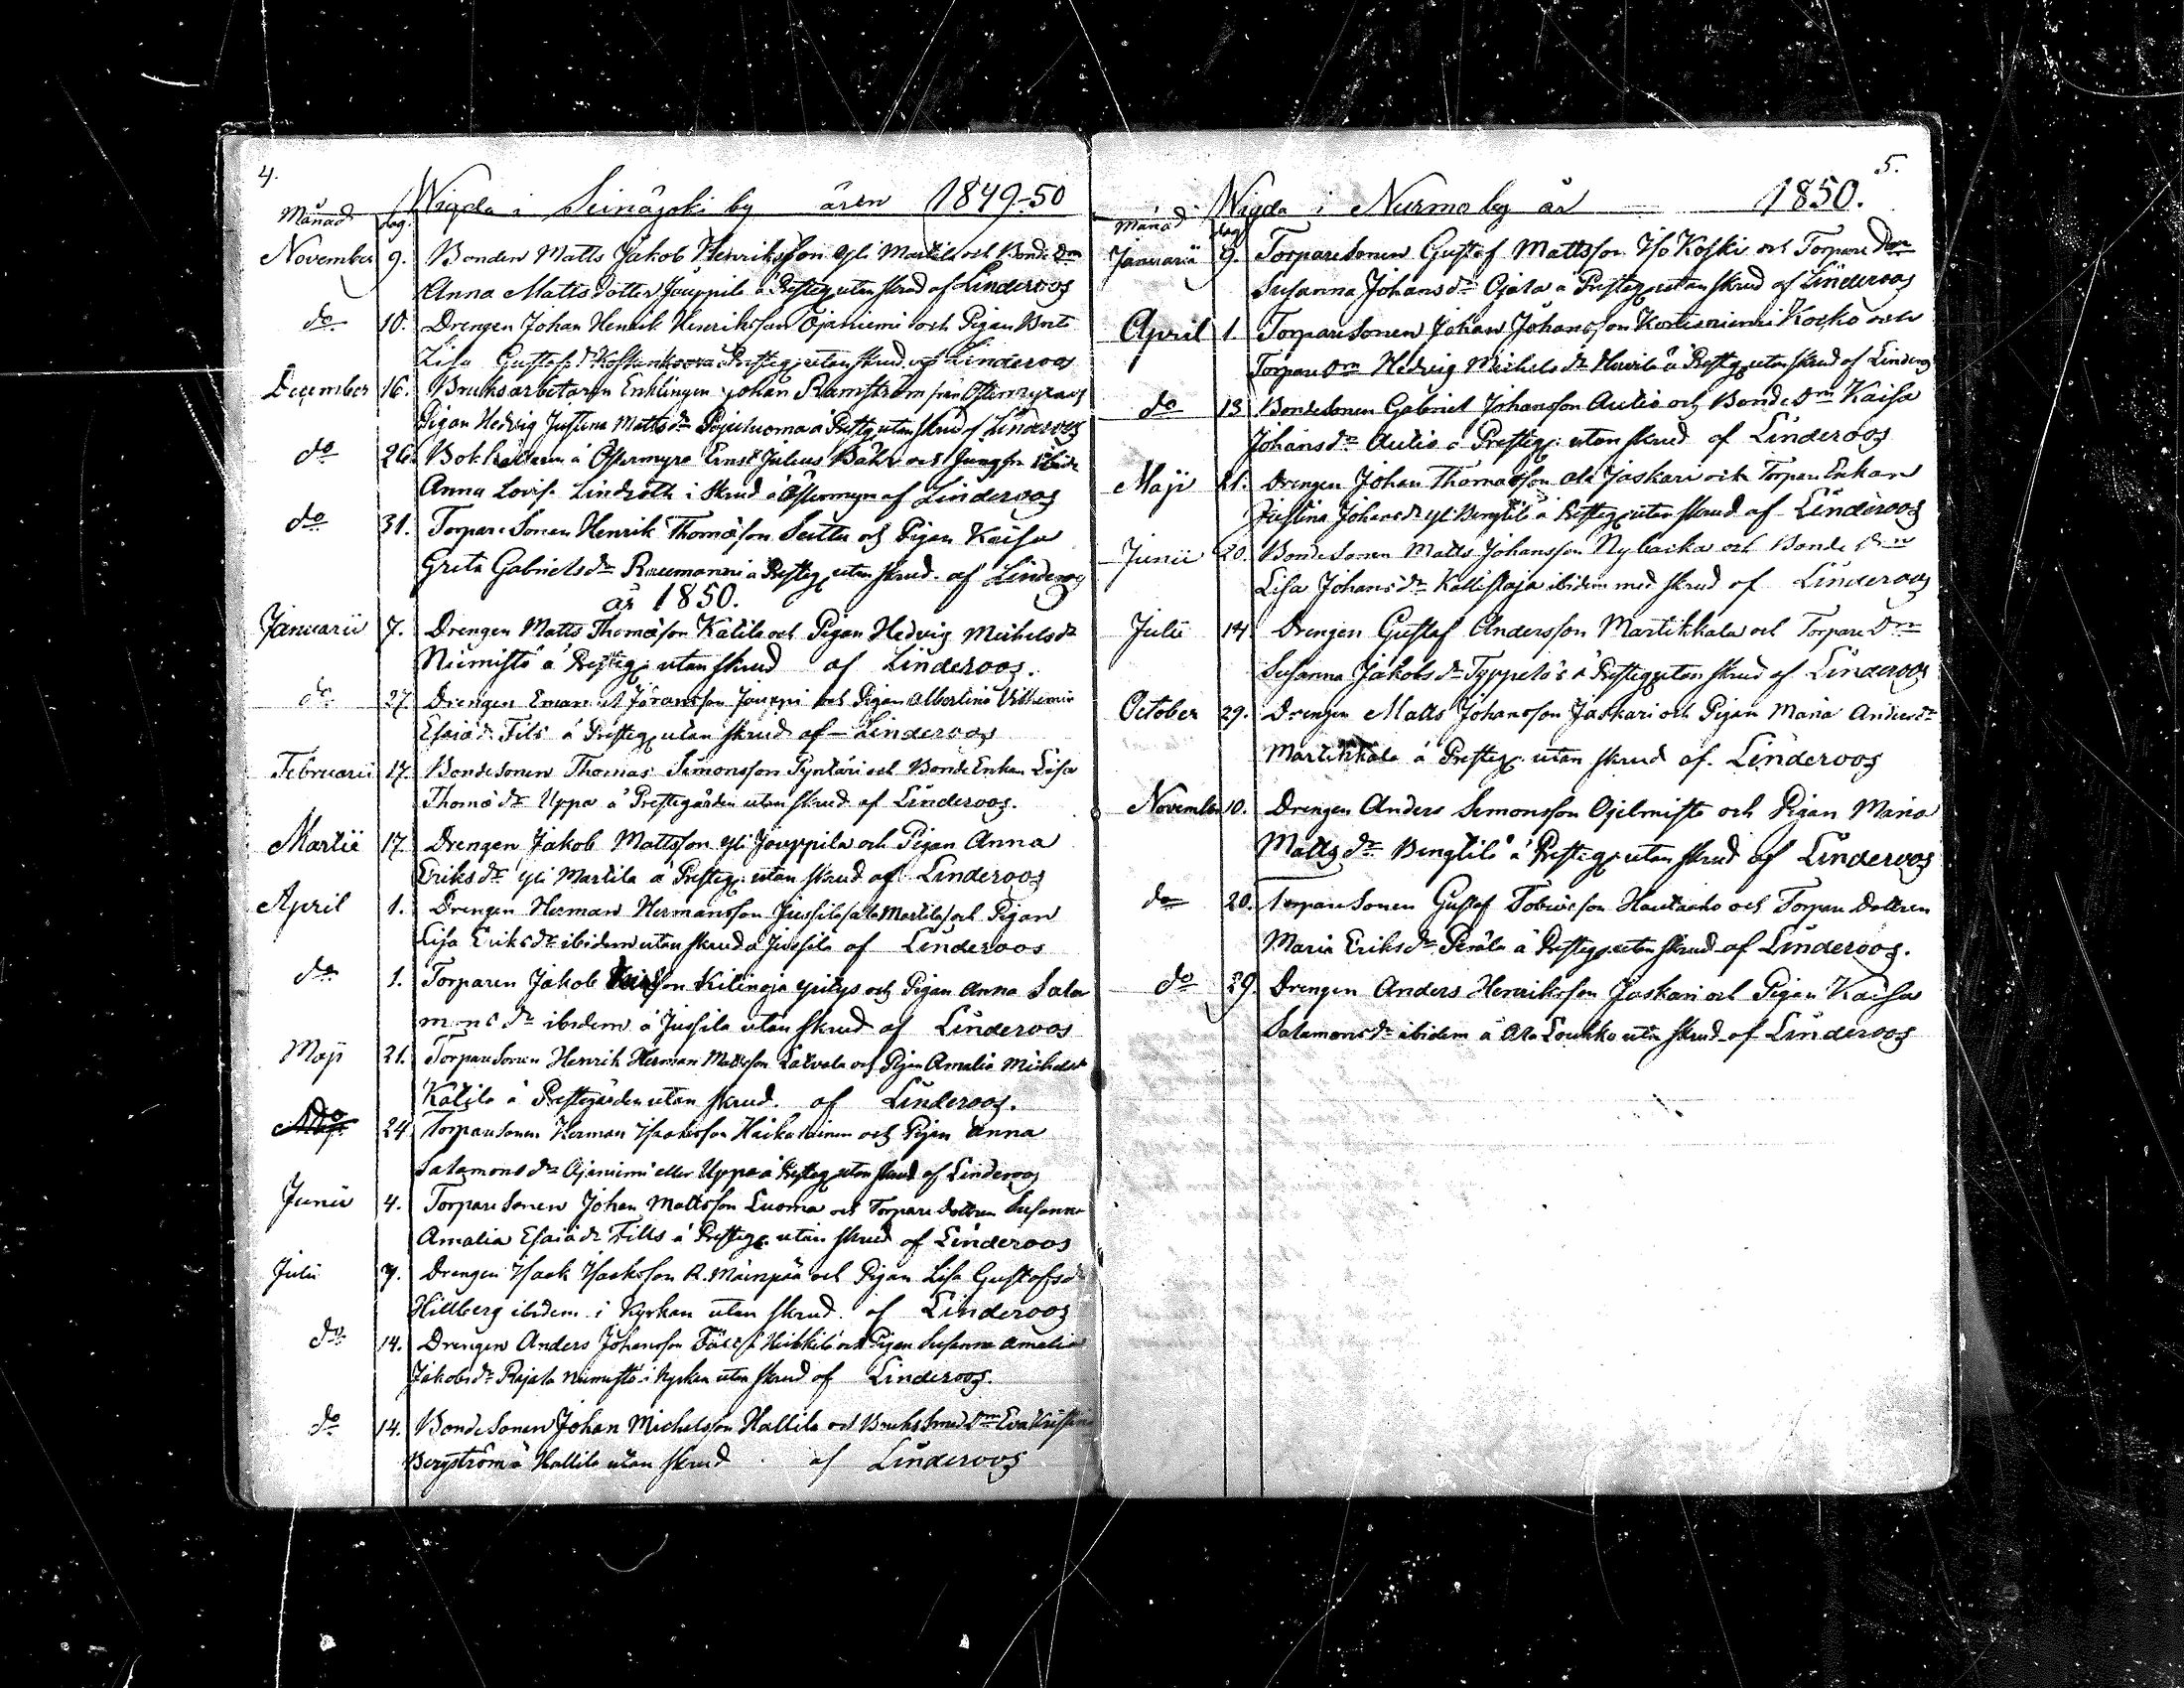 4.
Wigda i Seinäjoki by åren 1849-50
Månad dag.
November 9. Bonden Matts Jakob Henriksson Yli Martila och Bonde Drn
Anna Matts dotter Jouppila å Presteg. utan skrud af Linderoos
do 10. Drengen Johan Henrik Henriksson Ojaniemi och Pigan
Lisa Gustafs dr å Presteg. utan skrud af Linderoos
December 16. Bruksarbetaren Enklingen Johan Ramström från Östermyra och
Pigan Hedvig Justina Matts dr Pajuluoma å Presteg utan skrud af Linderoos
do 26. Bokhållaren å Östermyra Ernst Julius Bähr och Jungfru ibid.
Anna Lovis. Lindroth i Skrud å Östermyra af Linderoos
do 31. Torpare Sonen Henrik Thomasson och Pigan Kaisa
Greta Gabriels dr Raumanni å Presteg utan skrud. af Linderoos
år 1850.
Januarii 7. Drengen Matts Thomasson Katila och Pigan Hedvig Michels dr
Niemistö å Presteg. utan skrud af Linderoos.
do 27. Drengen Emanuel Göransson Jouppi och Pigan Albertina Vilhelmina
Esaiæ dr Fils å Presteg. utan skrud af Linderoos
Februarii 17. Bonde Sonen Thomas Simonsson Pyntäri och Bonde Enkan Lisa
Thomæ dr Uppa å Prestegården utan skrud af Linderoos.
Martii 17. Drengen Jakob Mattsson Yli Jouppila och Pigan Anna
Eriks dr Yli Martila å Presteg. utan skrud af Linderoos
April 1. Drengen Herman Hermansson Jussila (ala Martila) och Pigan
Lisa Eriks dr ibidem utan skrud å Jussila af Linderoos
do 1. Torparen Jakob Kilinoja yritys och Pigan Anna Salo
mons dr ibidem å Jussila utan skrud af Linderoos
Maji 21. Torpare Sonen Henrik Herman Mattsson Latvala och Pigan Amalia Michels dr
Katila å Prestegården utan skrud. af Linderoos.
do 24 Torpare Sonen Herman Isaksson Haikolainen och Pigan Anna
Salamons dr Ojaniemi eller Uppa å Presteg utan skrud af Linderoos
Junii 4. Torpare Sonen Johan Mattsson Luoma och Torpare dottren Susanna
Amalia Esaiæ dr Fills å Presteg. utan skrud af Linderoos
Julii 7. Drengen Isack Isacksson R. Mäenpää och Pigan Lisa Gustafs dr
Hillberg ibidem i Kyrkan utan skrud. af Linderoos
do 14. Drengen Anders Johansson Heikkilä och Pigan Susanna Amalia
Jakobs dr Rajala Niemistö i Kyrkan utan skrud af Linderoos.
do 14. Bonde Sonen Johan Michelsson Hallila och Bruks Smed Drn Eva Kristina
Bergström å Hallila utan skrud af Linderoos
5.
Wigda i Nurmo by år 1850.
Månad dag
Januarii 9. Torpare Sonen Gustaf Mattsson Iso Koski och Torpare Drn
Susanna Johans dr Ojala å Presteg. utan skrud af Linderoos
April 1. Torpare Sonen Johan Johansson Kortesniemi Kosko och
Torpare Drn Hedvig Michels dr å Presteg. utan skrud af Linderoos
do 13. Bonde Sonen Gabriel Johansson Autio och Bonde Drn Kaisa
Johans dr Autio å Presteg. utan skrud af Linderoos
Maji 21. Drengen Johan Thomasson ala Jaskari och Torpare Enkan
Justina Johans dr yli Bengtilä å Presteg. utan skrud af Linderoos
Junii 20. Bonde Sonen Matts Johansson Nybacka och Bonde Drn
Lisa Johans dr Kallistaja ibidem med skrud af Linderoos
Julii 14. Drengen Gustaf Andersson Martikkala och Torpare Drn
Susanna Jakobs dr Typpelä å Presteg. utan skrud af Linderoos
October 29. Drengen Matts Johansson Jaskari och Pigan Maria Anders dr
Martikkala å Presteg. utan skrud af. Linderoos
November 10. Drengen Anders Simonsson Ojelmisto och Pigan Maria
Matts dr Bengtilä å Presteg. utan skrud af Linderoos
do 20. Torpare Sonen Gustaf Tobiasson Hautaaho och Torpare Dottren
Maria Eriks dr Perälä å Presteg. utan skrud af Linderoos.
do 29. Drengen Anders Henriksson Jaskari och Pigan Kaisa
Salamons dr ibidem å Ala Loukko utan skrud af Linderoos